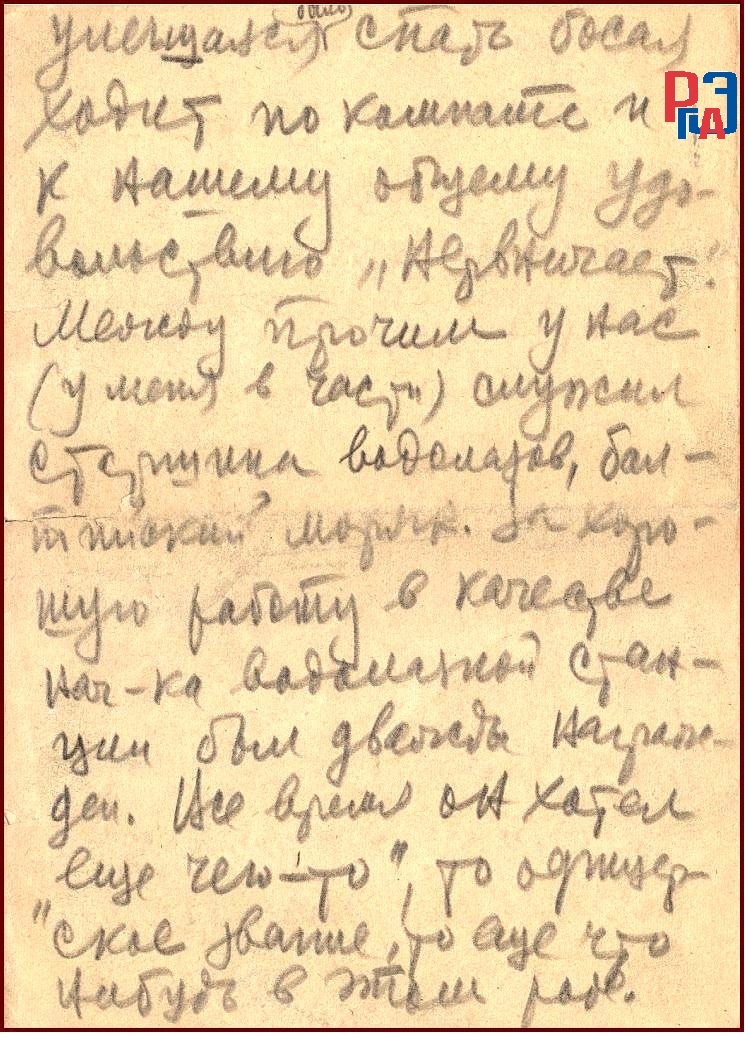 было
улегшаяся спать босая
ходит по комнате и
к нашему общему удо-
вольствию „нервничает".
Между прочим у нас
(у меня в части) служил
старшина водолазов, бал-
тийский моряк. За хоро-
шую работу в качестве
нач-ка водолазной стан-
ции был дважды награж-
ден. Все время он хотел
еще чего-то", то офицер-
"ское звание, то еще что
нибудь в этом роде.
РГАЭ